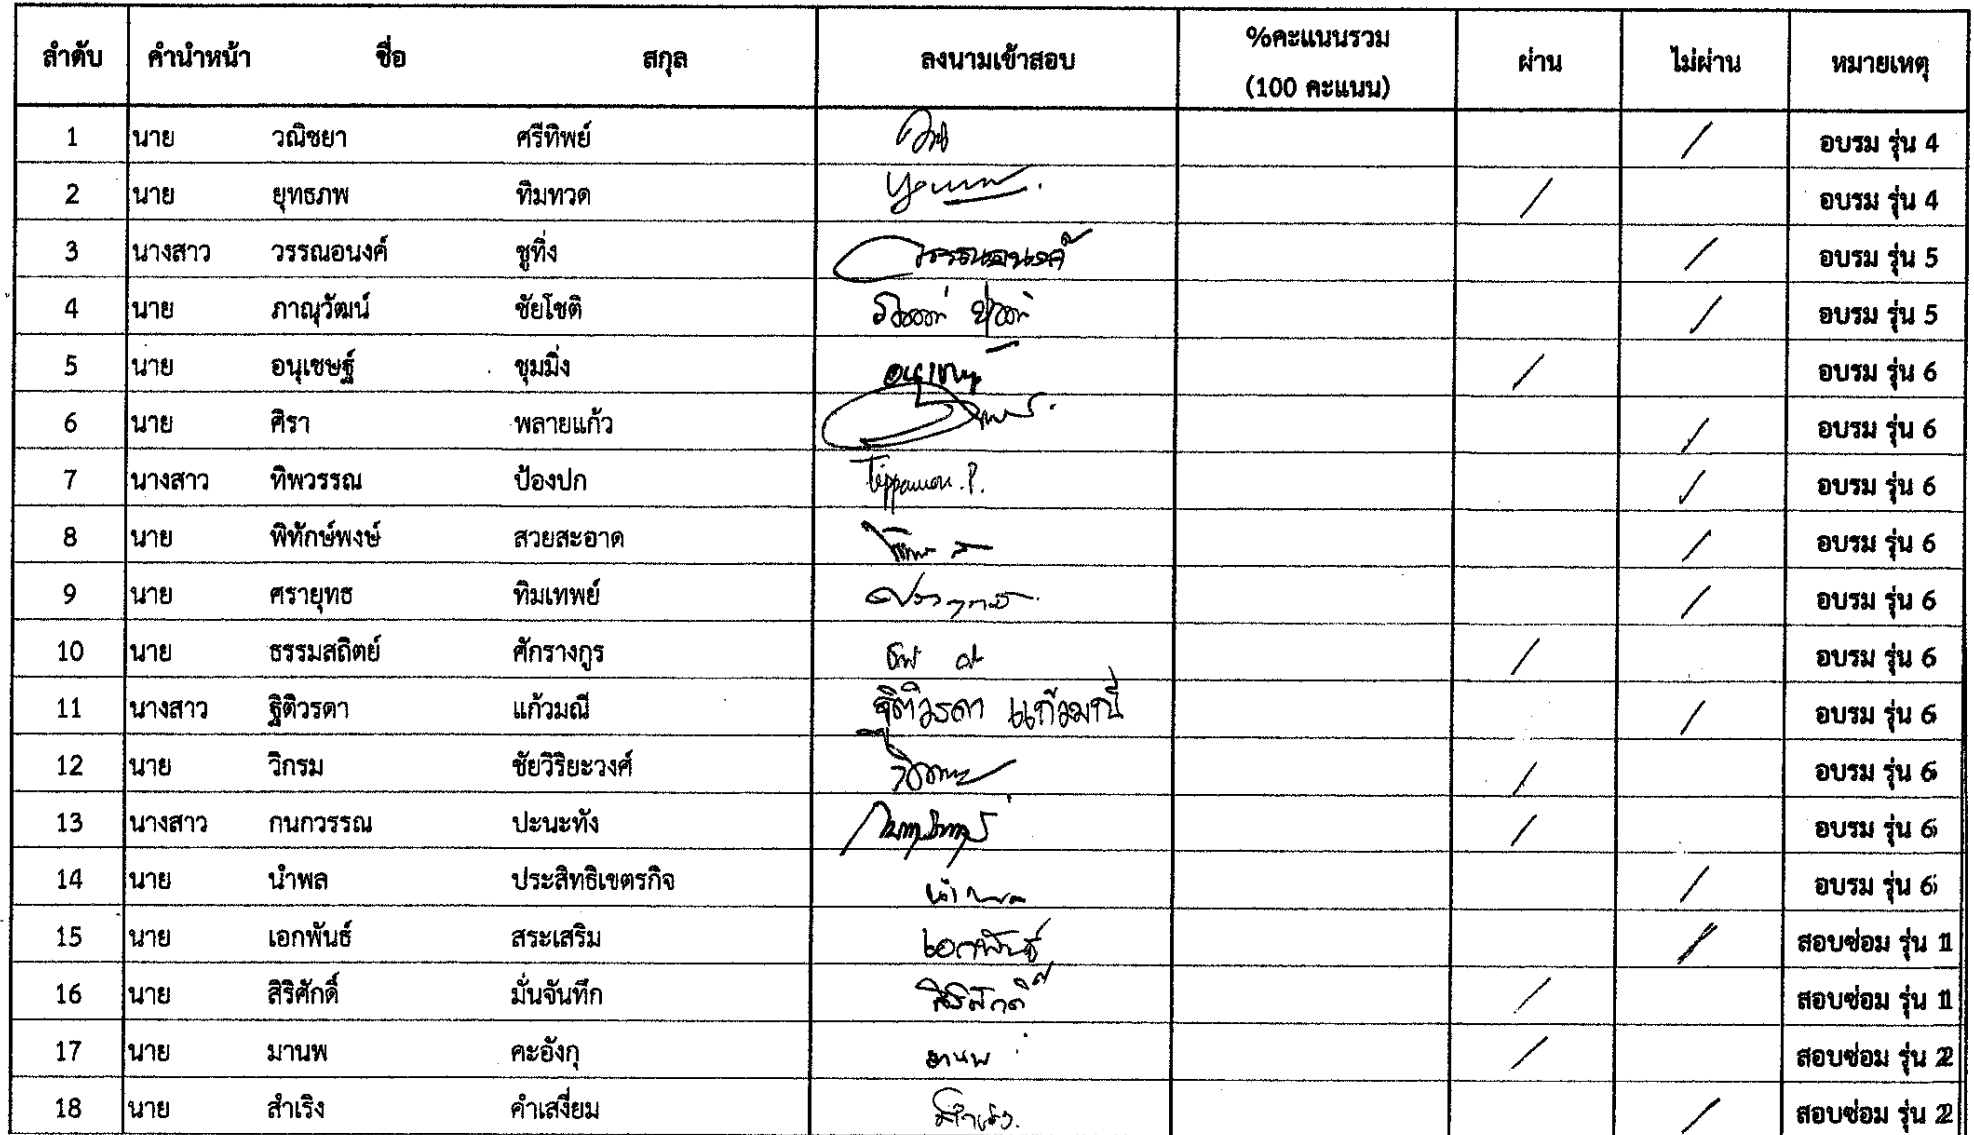 ลำดับ คำนำหน้า ชื่อ สกุล ลงนามเข้าสอบ %คะแนนรวม (100 คะแนน) ผ่าน ไม่ผ่าน หมายเหตุ
1 นาย วณิชยา ศรีทิพย์ / อบรม รุ่น 4
2 นาย ยุทธภพ ทิมทวด / อบรม รุ่น 4
3 นางสาว วรรณอนงค์ ชูทิ่ง วรรณอนงค์ / อบรม รุ่น 5
4 นาย ภาณุวัฒน์ ชัยโชติ / อบรม รุ่น 5
5 นาย อนุเชษฐ์ ชุมมิ่ง / อบรม รุ่น 6
6 นาย ศิรา พลายแก้ว / อบรม รุ่น 6
7 นางสาว ทิพวรรณ ป้องปก Tippawan.P. / อบรม รุ่น 6
8 นาย พิทักษ์พงษ์ สวยสะอาด / อบรม รุ่น 6
9 นาย ศรายุทธ ทิมเทพย์ / อบรม รุ่น 6
10 นาย ธรรมสถิตย์ ศักรางกูร / อบรม รุ่น 6
11 นางสาว ฐิติวรดา แก้วมณี ฐิติวรดา แก้วมณี / อบรม รุ่น 6
12 นาย วิกรม ชัยวิริยะวงศ์ / อบรม รุ่น 6
13 นางสาว กนกวรรณ ปะนะทัง / อบรม รุ่น 6
14 นาย นำพล ประสิทธิเขตรกิจ นำพล / อบรม รุ่น 6
15 นาย เอกพันธ์ สระเสริม เอกพันธ์ / สอบซ่อม รุ่น 1
16 นาย สิริศักดิ์ มั่นจันทึก สิริศักดิ์ / สอบซ่อม รุ่น 1
17 นาย มานพ คะอังกุ มานพ / สอบซ่อม รุ่น 2
18 นาย สำเริง คำเสงี่ยม สำเริง / สอบซ่อม รุ่น 2